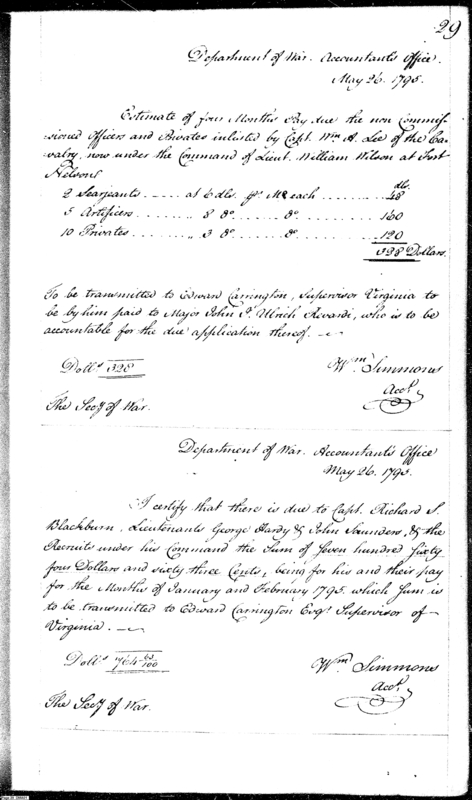 29
Department of War. Accountant's Office.
May 26. 1795.
Estimate of four Months Pay due the non Commis-
sioned Officers and Privates inlisted by Capt. Wm. A. Lee of the Ca-
valry, now under the Command of Lieut. William Wilson at Fort
Nelson
dls.
2 Searjeants ...... at 6 dls. pr. Mo. each ......... 48
5 Artificers ........ " 8 do. ... do. ......... 160
10 Privates ........ " 3 do. ... do. ......... 120
328 Dollars.
To be transmitted to Edward Carrington, Supervisor Virginia to
be by him paid to Major John J. Ulrich Rivardi, who is to be
accountable for the due application thereof.
Dolls. 328
Wm. Simmons
Acct.
The Secy of War.
Department of War. Accountant's Office
May 26. 1795.
I certify that there is due to Capt. Richard S.
Blackburn, Lieutenants George Hardy & John Saunders, & the
Recruits under his Command the Sum of Seven hundred Sixty
four Dollars and sixty three Cents, being for his and their pay
for the Months of January and February 1795. which Sum is
to be transmitted to Edward Carrington Esqr. Supervisor of
Virginia.
Dolls. 764 63/100
Wm. Simmons
Acct.
The Secy of War.